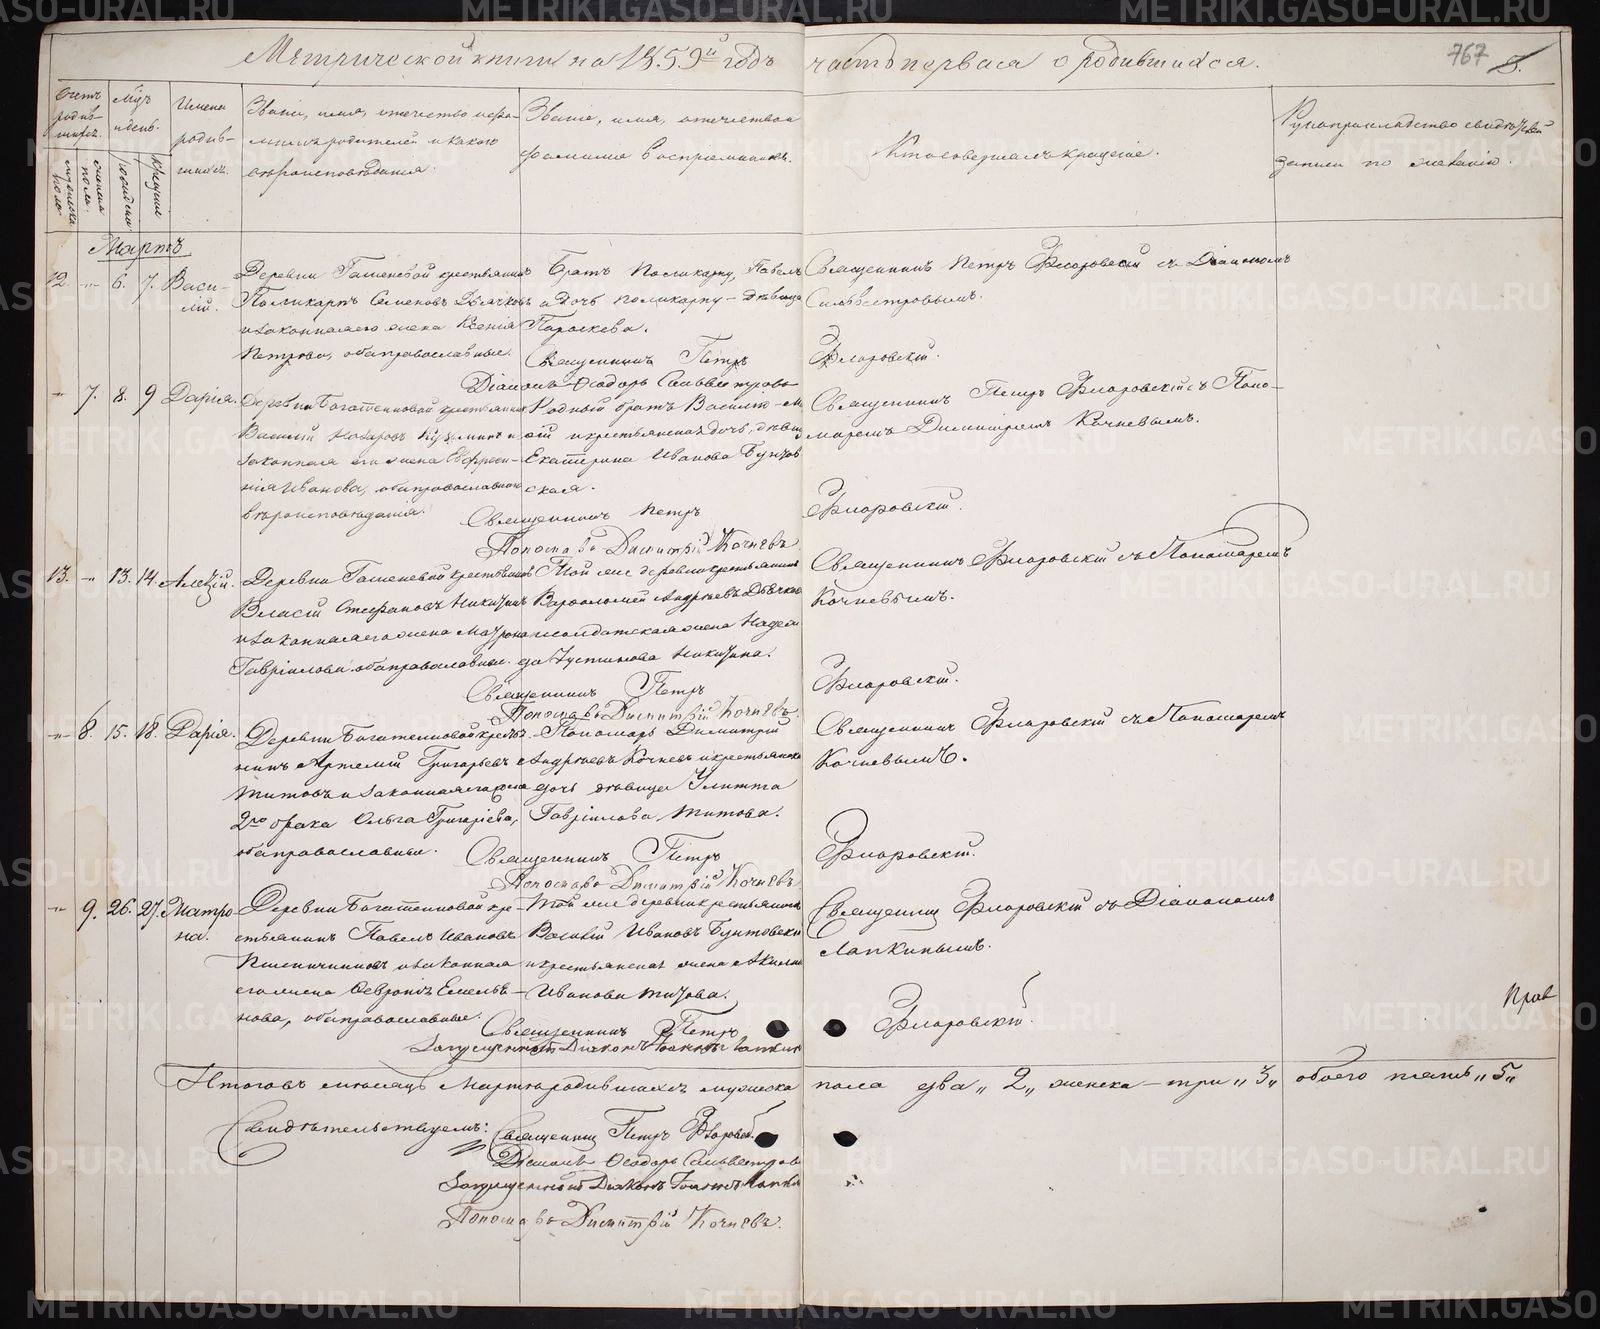 Метрической книги на 1859й годъ часть первая о родившихся.
767
Счетъ родив-шихся.
Мужеска пола
Женска пола.
Мѣсяцъ и день.
рожденія
крещенія
Имена родив-шихся.
Званіе, имя, отчество и фа-
милія родителей и какого
вѣроисповѣданія.
Званіе, имя, отчество и
фамилія воспріемниковъ.
Кто совершалъ крещеніе.
Рукоприкладство свидѣтелей
записи по желанію.
Мартъ
12. -"- 6. 7. Васи-
лій.
Деревни крестьянинъ
Поликарпъ Семеновъ Дьячковъ
и законная его жена Ксенія
Петрова, оба православные.
Братъ Поликарпу, Павелъ
и дочь Поликарпу - дѣвица
Параскева.
Священникъ Петръ Флоровскій съ Діакономъ
Сильвестровымъ.
Священникъ Петръ Флоровскій.
Діаконъ Ѳеодоръ Сильвестровъ
-"- 7. 8. 9 Дарія.
Деревни крестьянинъ
Василій и
законная его жена Евфроси-
нія Иванова, оба православнаго
вѣроисповѣданія.
Родный братъ Василію
и крестьянская дочь, дѣвица
Екатерина Иванова Бунтов
ская.
Священникъ Петръ Флоровскій съ Поно-
маремъ Димитріемъ Кочневымъ.
Священникъ Петръ Флоровскій.
Пономарь Димитрій Кочневъ
13. -"- 13. 14. Алексій.
Деревни крестьянинъ
Власій Стефановъ Никитинъ
и законная его жена Матрона
Гавріилова оба православные.
Той же деревни крестьянинъ
Варѳоломей Андреевъ Дьячковъ
и солдатская жена Надеж
да Устинова Никитина.
Священникъ Флоровскій съ Пономаремъ
Кочневымъ.
Священникъ Петръ Флоровскій.
Пономарь Димитрій Кочневъ.
-"- 8. 15. 18. Дарія.
Деревни крестья-
нинъ Артемій Григорьевъ
Титовъ и законная его жена
2го брака Ольга Григоріева,
оба православные.
Пономарь Димитрій
Андреевъ Кочневъ и крестьянска
дочь дѣвица Улитта
Гавріилова Титова.
Священникъ Флоровскій съ Пономаремъ
Кочневымъ.
Священникъ Петръ Флоровскій.
Пономарь Димитрій Кочневъ
-"- 9. 26. 27. Матро-
на.
Деревни кре-
стьянинъ Павелъ Ивановъ
Пшеничниковъ и законная
его жена Ѳевронія Емелья-
нова, оба православные.
Той же деревни крестьянинъ
Василій Ивановъ Бунтовскій
и крестьянская жена Акилина
Иванова Титова.
Священникъ Флоровскій съ Діакономъ
Лапкинымъ.
Священникъ Петръ Флоровскій.
Запрещенный Діаконъ Іоаннъ Лапкинъ
Прав
Итого въ мѣсяцѣ Мартѣ родившихся мужеска пола два "2" женска - три "3" обоего пять "5"
Свидѣтельствуемъ: Священникъ Петръ Флоровскій
Діаконъ Ѳеодоръ Сильвестровъ
Запрещенный Діаконъ Іоаннъ Лапкинъ
Пономарь Димитрій Кочневъ.
METRIKI.GASO-URAL.RU